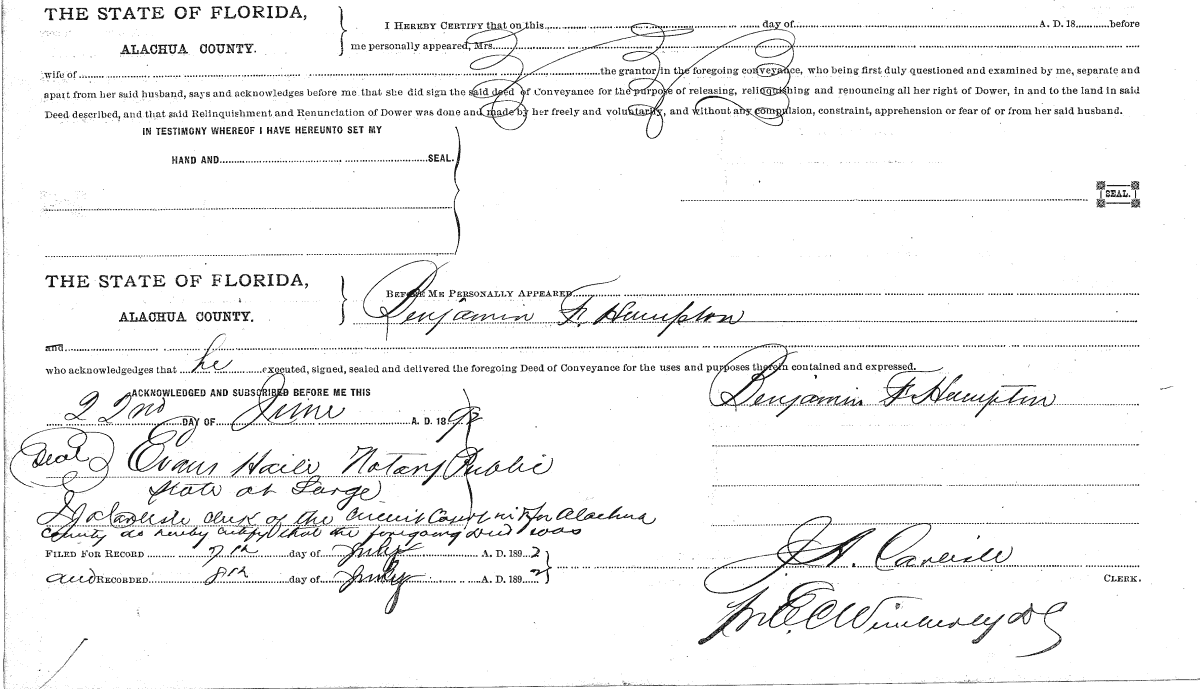 THE STATE OF FLORIDA,
ALACHUA COUNTY.
I HEREBY CERTIFY that on this day of A. D. 18 before
me personally appeared, Mrs.
wife of the grantor in the foregoing conveyance, who being first duly questioned and examined by me, separate and
apart from her said husband, says and acknowledges before me that she did sign the said deed of Conveyance for the purpose of releasing, relinquishing and renouncing all her right of Dower, in and to the land in said
Deed described, and that said Relinquishment and Renunciation of Dower was done and made by her freely and voluntarily, and without any compulsion, constraint, apprehension or fear of or from her said husband.
IN TESTIMONY WHEREOF I HAVE HEREUNTO SET MY
HAND AND SEAL.
SEAL.
THE STATE OF FLORIDA,
ALACHUA COUNTY.
BEFORE ME PERSONALLY APPEARED
Benjamin F. Hampton
and
who acknowledgedges that he executed, signed, sealed and delivered the foregoing Deed of Conveyance for the uses and purposes therein contained and expressed.
ACKNOWLEDGED AND SUBSCRIBED BEFORE ME THIS
22nd DAY OF June A. D. 1892
Benjamin F. Hampton
Seal Evans Haile Notary Public
State at Large
J A Carlisle clerk of the Circuit Court in & for Alachua
County do hereby certify that the foregoing deed was
FILED FOR RECORD 7th day of July A. D. 1892
and RECORDED 8th day of July A. D. 1892
J. A. Carlisle
CLERK.
Wimberly DC